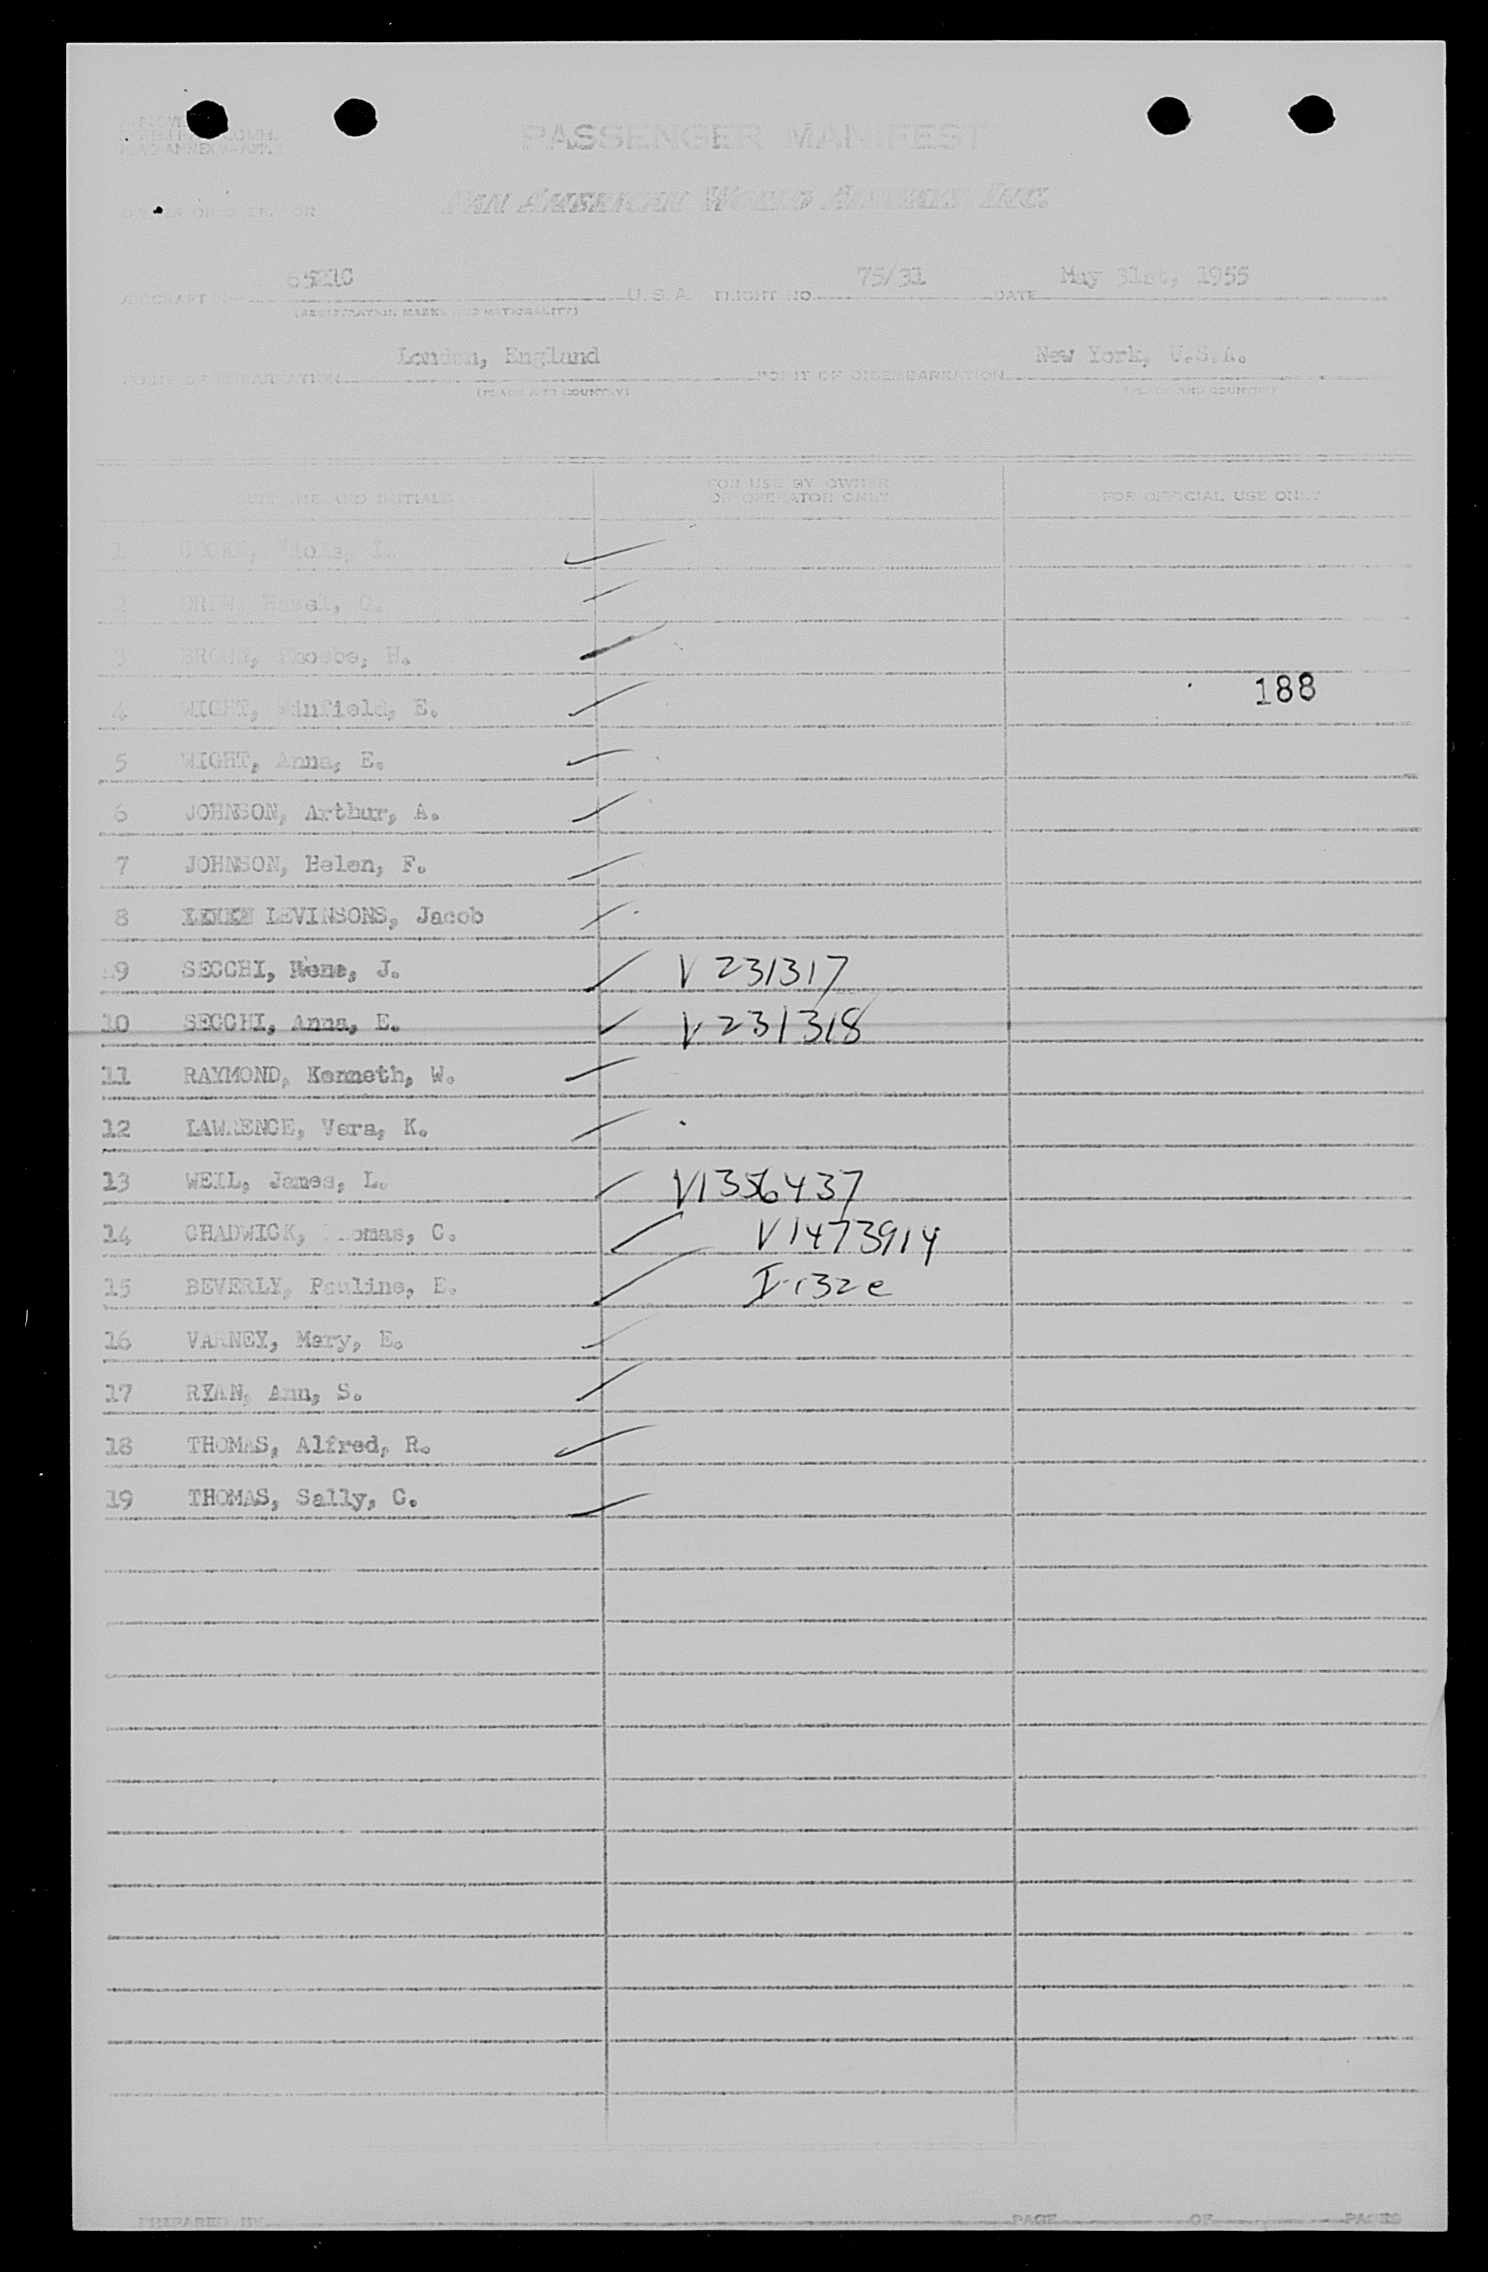 PASSENGER MANIFEST
PAN AMERICAN WORLD AIRWAYS INC.
OWNER OR OPERATOR
6521C
75/31
May 31st, 1955
U.S.A. FLIGHT NO. DATE
(REGISTRATION MARKS AND NATIONALITY)
London, England
New York, U.S.A.
POINT OF EMBARKATION POINT OF DISEMBARKATION
(PLACE AND COUNTRY) (PLACE AND COUNTRY)
SURNAME AND INITIALS
FOR USE BY OWNER
OR OPERATOR ONLY
FOR OFFICIAL USE ONLY
1 Viola, I.
2 DREW, Hazel, C.
3 Phoebe, H.
188
4 WIGHT, Winfield, E.
5 WIGHT, Anna, E.
6 JOHNSON, Arthur, A.
7 JOHNSON, Helen, F.
8 LEVINSONS, Jacob
9 SECCHI, Rene, J. V 231317
10 SECCHI, Anna, E. V 231318
11 RAYMOND, Kenneth, W.
12 LAWRENCE, Vera, K.
13 WEIL, James, L. V1356437
14 CHADWICK, Thomas, C. V1473914
15 BEVERLY, Pauline, E. I-132e
16 VARNEY, Mary, E.
17 RYAN, Ann, S.
18 THOMAS, Alfred, R.
19 THOMAS, Sally, C.
PREPARED BY PAGE OF PAGES